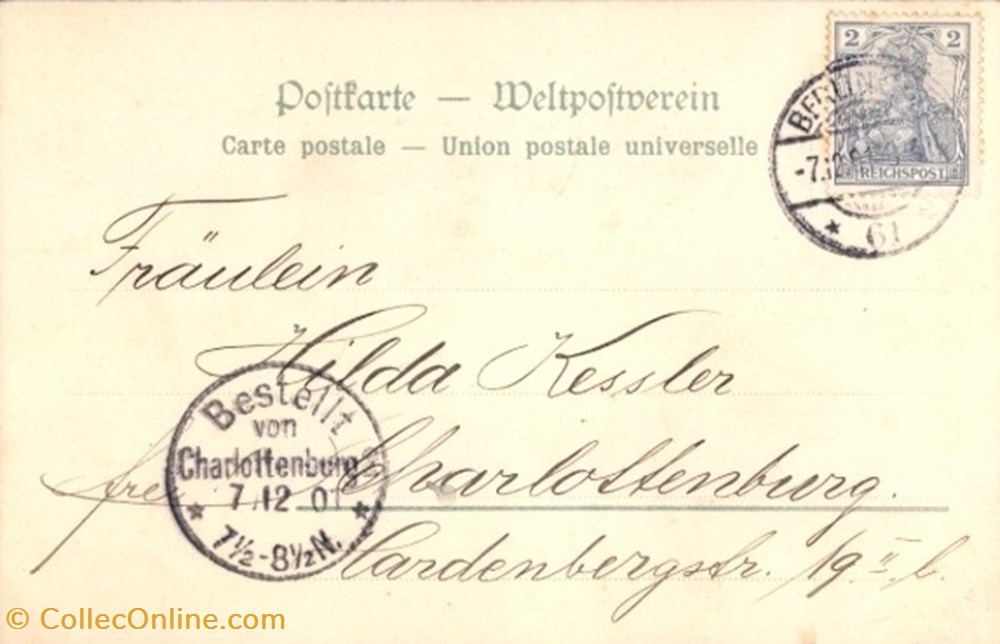 2 2
REICHSPOST
BERLIN
-7.12.01
* 61
Postkarte — Weltpostverein
Carte postale — Union postale universelle
Fräulein
Hilda Kessler
Charlottenburg.
Hardenbergstr. 19 II l.
Bestellt
von
Charlottenburg
7.12 01
* 7½-8½N. *
© CollecOnline.com